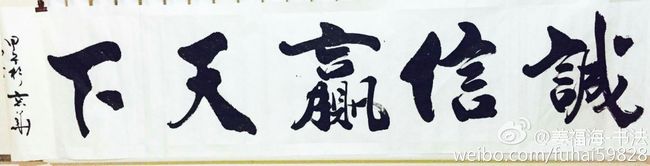 誠信贏天下
@姜福海-书法
weibo.com/fuhai59828